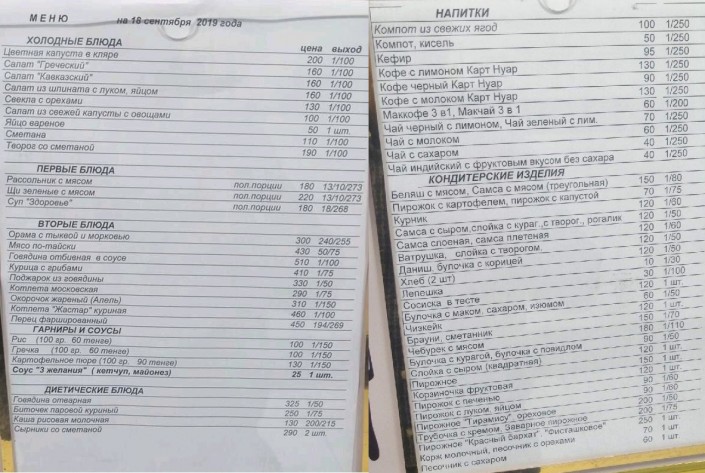 МЕНЮ на 18 сентября 2019 года
ХОЛОДНЫЕ БЛЮДА цена выход
Цветная капуста в кляре 200 1/100
Салат "Греческий" 160 1/100
Салат "Кавказский" 160 1/100
Салат из шпината с луком, яйцом 160 1/100
Свекла с орехами 130 1/100
Салат из свежей капусты с овощами 100 1/100
Яйцо вареное 50 1 шт.
Сметана 110 1/100
Творог со сметаной 190 1/100
ПЕРВЫЕ БЛЮДА
Рассольник с мясом пол.порции 180 13/10/273
Щи зеленые с мясом пол.порции 220 13/10/273
Суп "Здоровье" пол.порции 180 18/268
ВТОРЫЕ БЛЮДА
Орама с тыквой и морковью 300 240/255
Мясо по-тайски 430 50/75
Говядина отбивная в соусе 510 1/100
Курица с грибами 410 1/75
Поджарок из говядины 330 1/50
Котлета московская 290 1/75
Окорочок жареный (Алель) 310 1/150
Котлета "Жастар" куриная 460 1/100
Перец фаршированный 450 194/269
ГАРНИРЫ И СОУСЫ
Рис (100 гр. 60 тенге) 100 1/150
Гречка (100 гр. 60 тенге) 100 1/150
Картофельное пюре (100 гр. 90 тенге) 130 1/150
Соус "3 желания" ( кетчуп, майонез) 25 1 шт.
ДИЕТИЧЕСКИЕ БЛЮДА
Говядина отварная 325 1/50
Биточек паровой куриный 250 1/75
Каша рисовая молочная 130 200/215
Сырники со сметаной 290 2 шт.
НАПИТКИ
Компот из свежих ягод 100 1/250
Компот, кисель 50 1/250
Кефир 95 1/250
Кофе с лимоном Карт Нуар 130 1/250
Кофе черный Карт Нуар 90 1/250
Кофе с молоком Карт Нуар 130 1/250
Маккофе 3 в1, Макчай 3 в 1 60 1/200
Чай черный с лимоном, Чай зеленый с лим. 70 1/250
Чай с молоком 60 1/250
Чай с сахаром 40 1/250
Чай индийский с фруктовым вкусом без сахара 40 1/250
КОНДИТЕРСКИЕ ИЗДЕЛИЯ
Беляш с мясом, Самса с мясом (треугольная) 150 1/80
Пирожок с картофелем, пирожок с капустой 70 1/75
Курник 120 1/50
Самса с сыром,слойка с кураг.,с творог., рогалик 120 1/60
Самса слоеная, самса плетеная 120 1/50
Ватрушка, слойка с творогом. 120 1/50
Даниш, булочка с корицей 120
Хлеб (2 шт) 10 1/30
Лепешка 30 1/100
Сосиска в тесте 120 1 шт.
Булочка с маком, сахаром, изюмом 60 1/50
Чизкейк 150 1/70
Брауни, сметанник 180 1/110
Чебурек с мясом 120 1 шт.
Булочка с курагой, булочка с повидлом
Слойка с сыром (квадратная)
Пирожное
Корзиночка фруктовая
Пирожок с печенью
Пирожок с луком, яйцом
Пирожное "Тирамису", ореховое
Трубочка с кремом, Заварное пирожное
Пирожное "Красный бархат", "Фисташковое"
Корж молочный, песочник с орехами
Песочник с сахаром